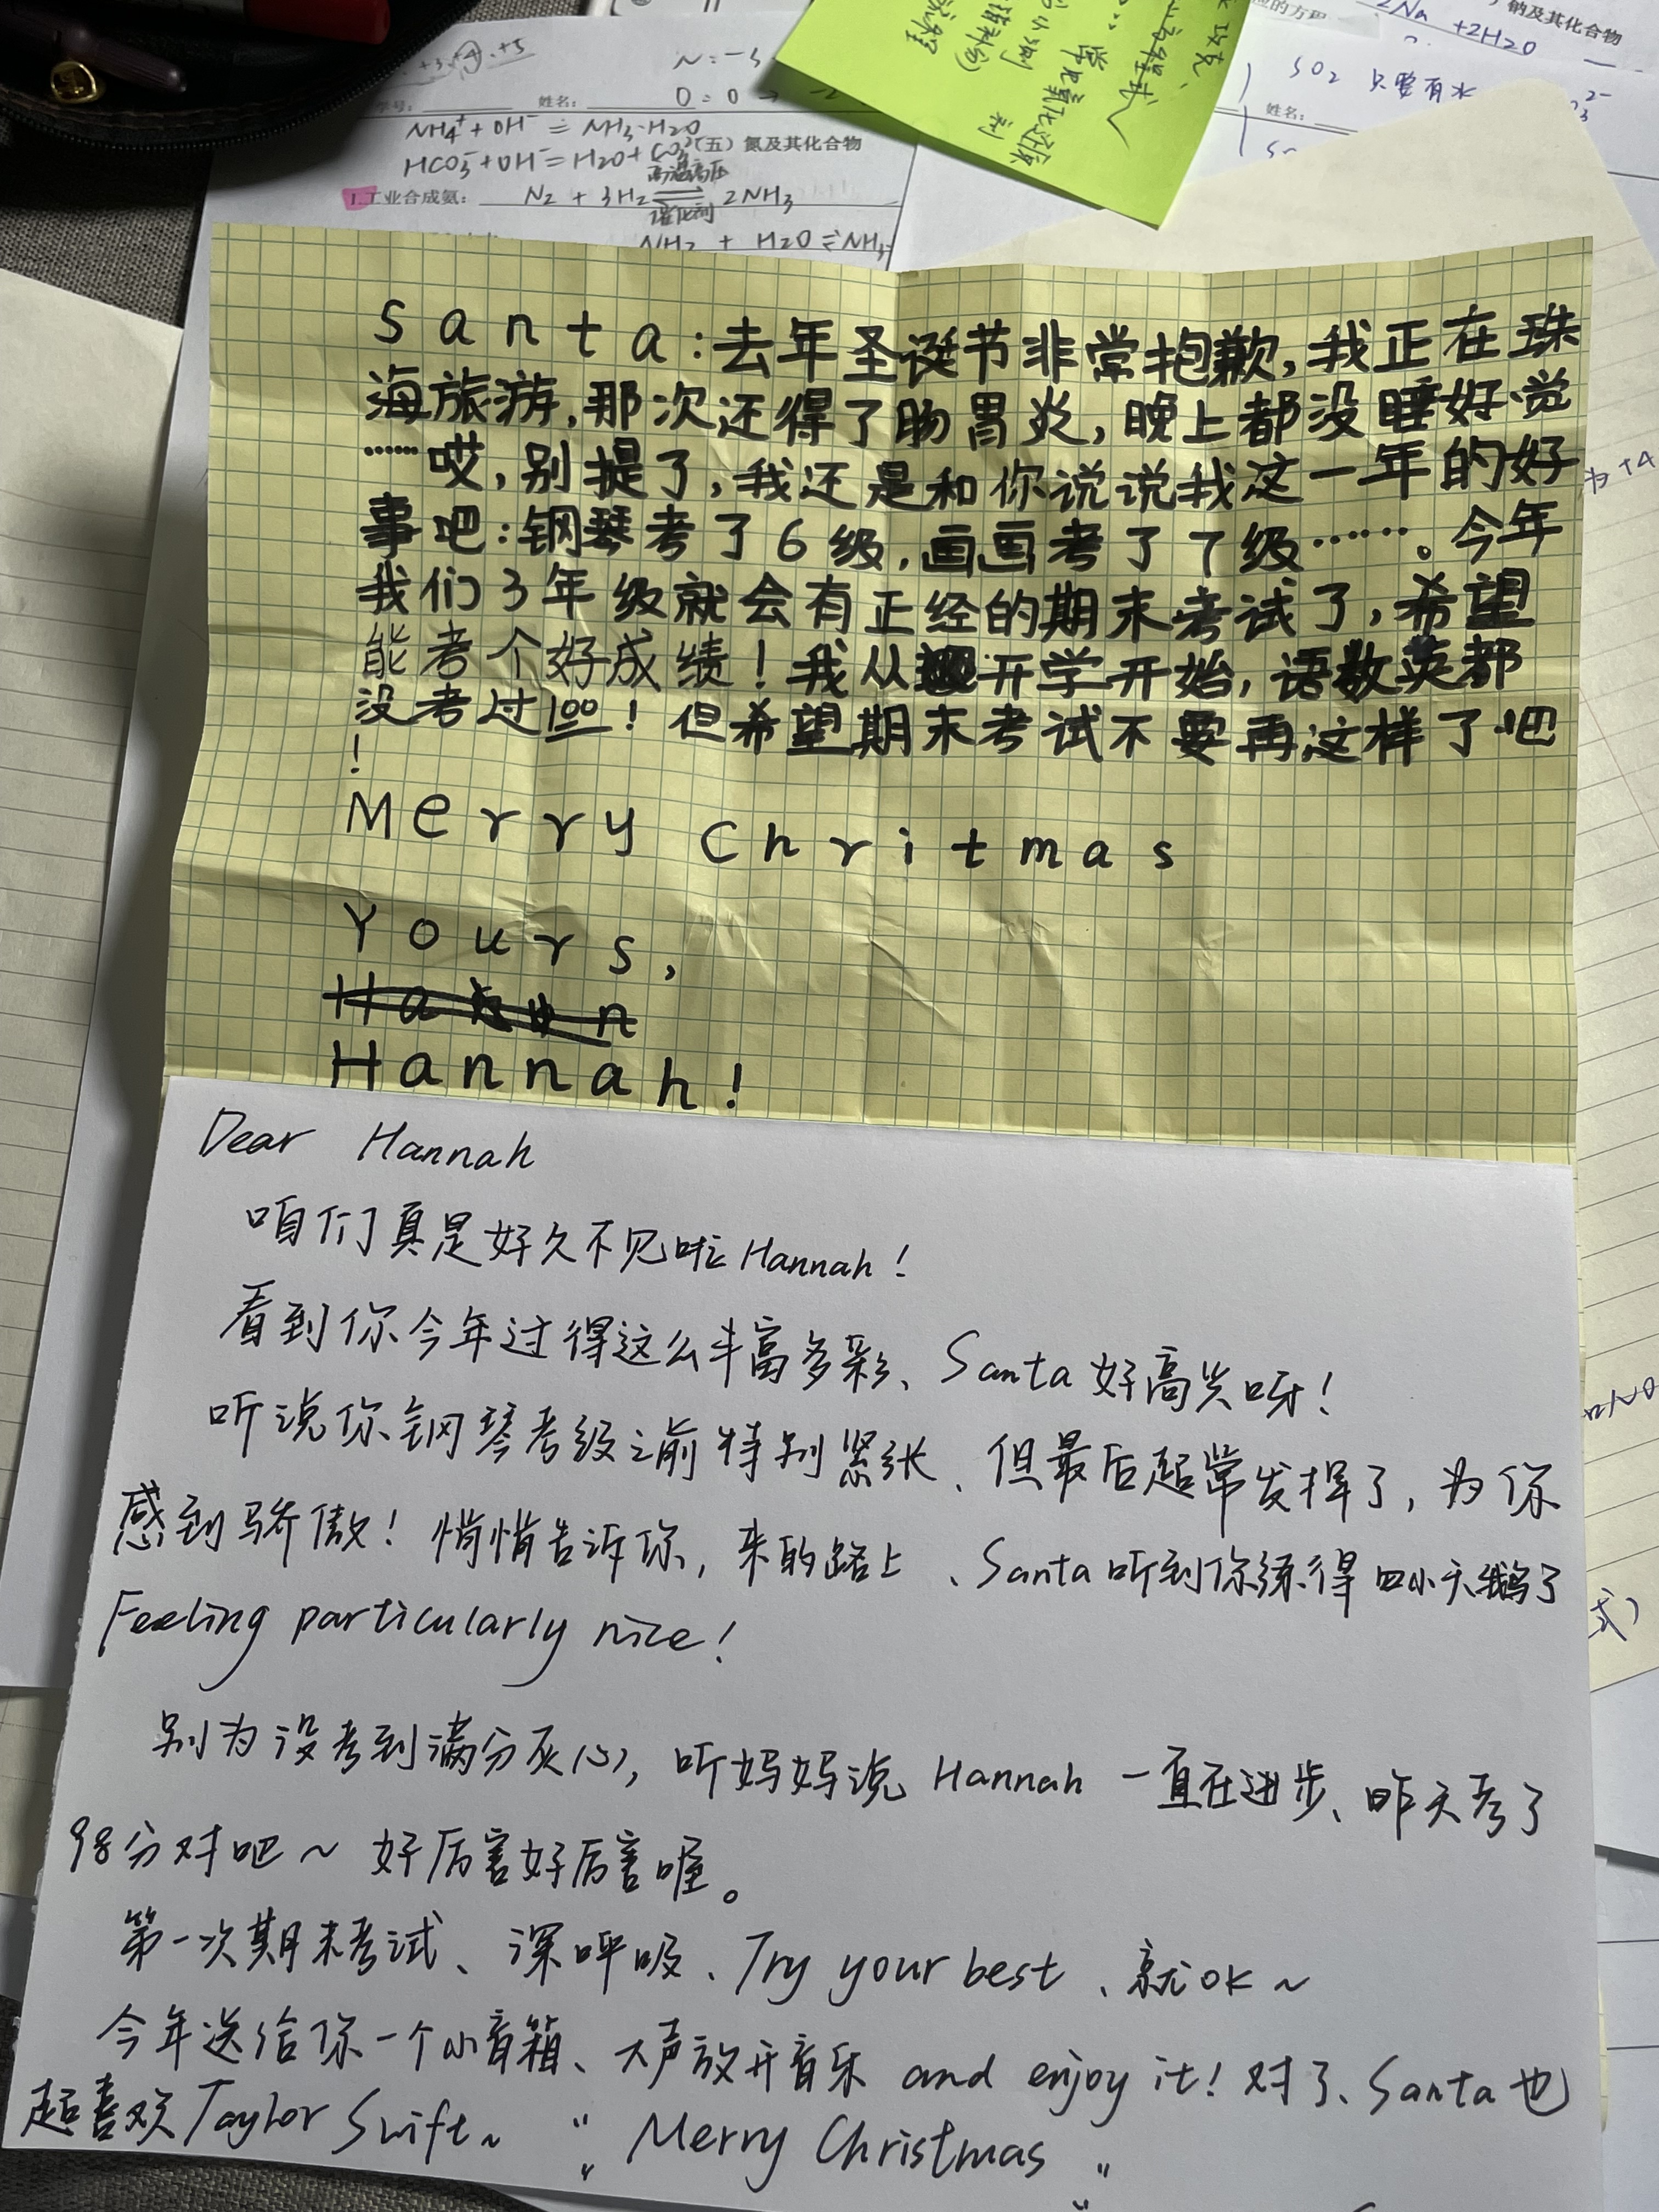 N=-3
0=0
姓名:
NH₄⁺+OH⁻=NH₃·H₂O
HCO₃⁻+OH⁻=H₂O+CO₃²⁻
(五) 氮及其化合物
1.工业合成氨: N₂ + 3H₂ 高温高压 催化剂 2NH₃
NH₃ + H₂O ⇌ NH₃·
钠及其化合物
2Na +2H₂O
SO₂ 只要有水
姓名:
Santa:去年圣诞节非常抱歉,我正在珠
海旅游,那次还得了肠胃炎,晚上都没睡好觉
……哎,别提了,我还是和你说说我这一年的好
事吧:钢琴考了6级,画画考了7级……。今年
我们3年级就会有正经的期末考试了,希望
能考个好成绩!我从开学开始,语数英都
没考过100!但希望期末考试不要再这样了吧
!
Merry Chritmas
Yours,
Hannah!
Dear Hannah
咱们真是好久不见啦Hannah!
看到你今年过得这么丰富多彩、Santa好高兴呀!
听说你钢琴考级之前特别紧张、但最后超常发挥了,为你
感到骄傲!悄悄告诉你,来的路上、Santa听到你练得四小天鹅了
Feeling particularly nice!
别为没考到满分灰心,听妈妈说 Hannah 一直在进步、昨天考了
98分对吧~ 好厉害好厉害喔。
第一次期末考试、深呼吸、Try your best、就OK~
今年送给你一个小音箱、大声放开音乐 and enjoy it!对了、Santa也
超喜欢Taylor Swift~ "Merry Christmas"